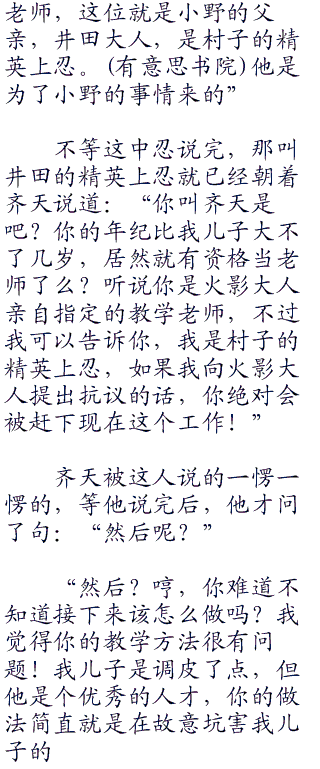 老师，这位就是小野的父
亲，井田大人，是村子的精
英上忍。(有意思书院)他是
为了小野的事情来的”
不等这中忍说完，那叫
井田的精英上忍就已经朝着
齐天说道：“你叫齐天是
吧？你的年纪比我儿子大不
了几岁，居然就有资格当老
师了么？听说你是火影大人
亲自指定的教学老师，不过
我可以告诉你，我是村子的
精英上忍，如果我向火影大
人提出抗议的话，你绝对会
被赶下现在这个工作！”
齐天被这人说的一愣一
愣的，等他说完后，他才问
了句：“然后呢？”
“然后？哼，你难道不
知道接下来该怎么做吗？我
觉得你的教学方法很有问
题！我儿子是调皮了点，但
他是个优秀的人才，你的做
法简直就是在故意坑害我儿
子的